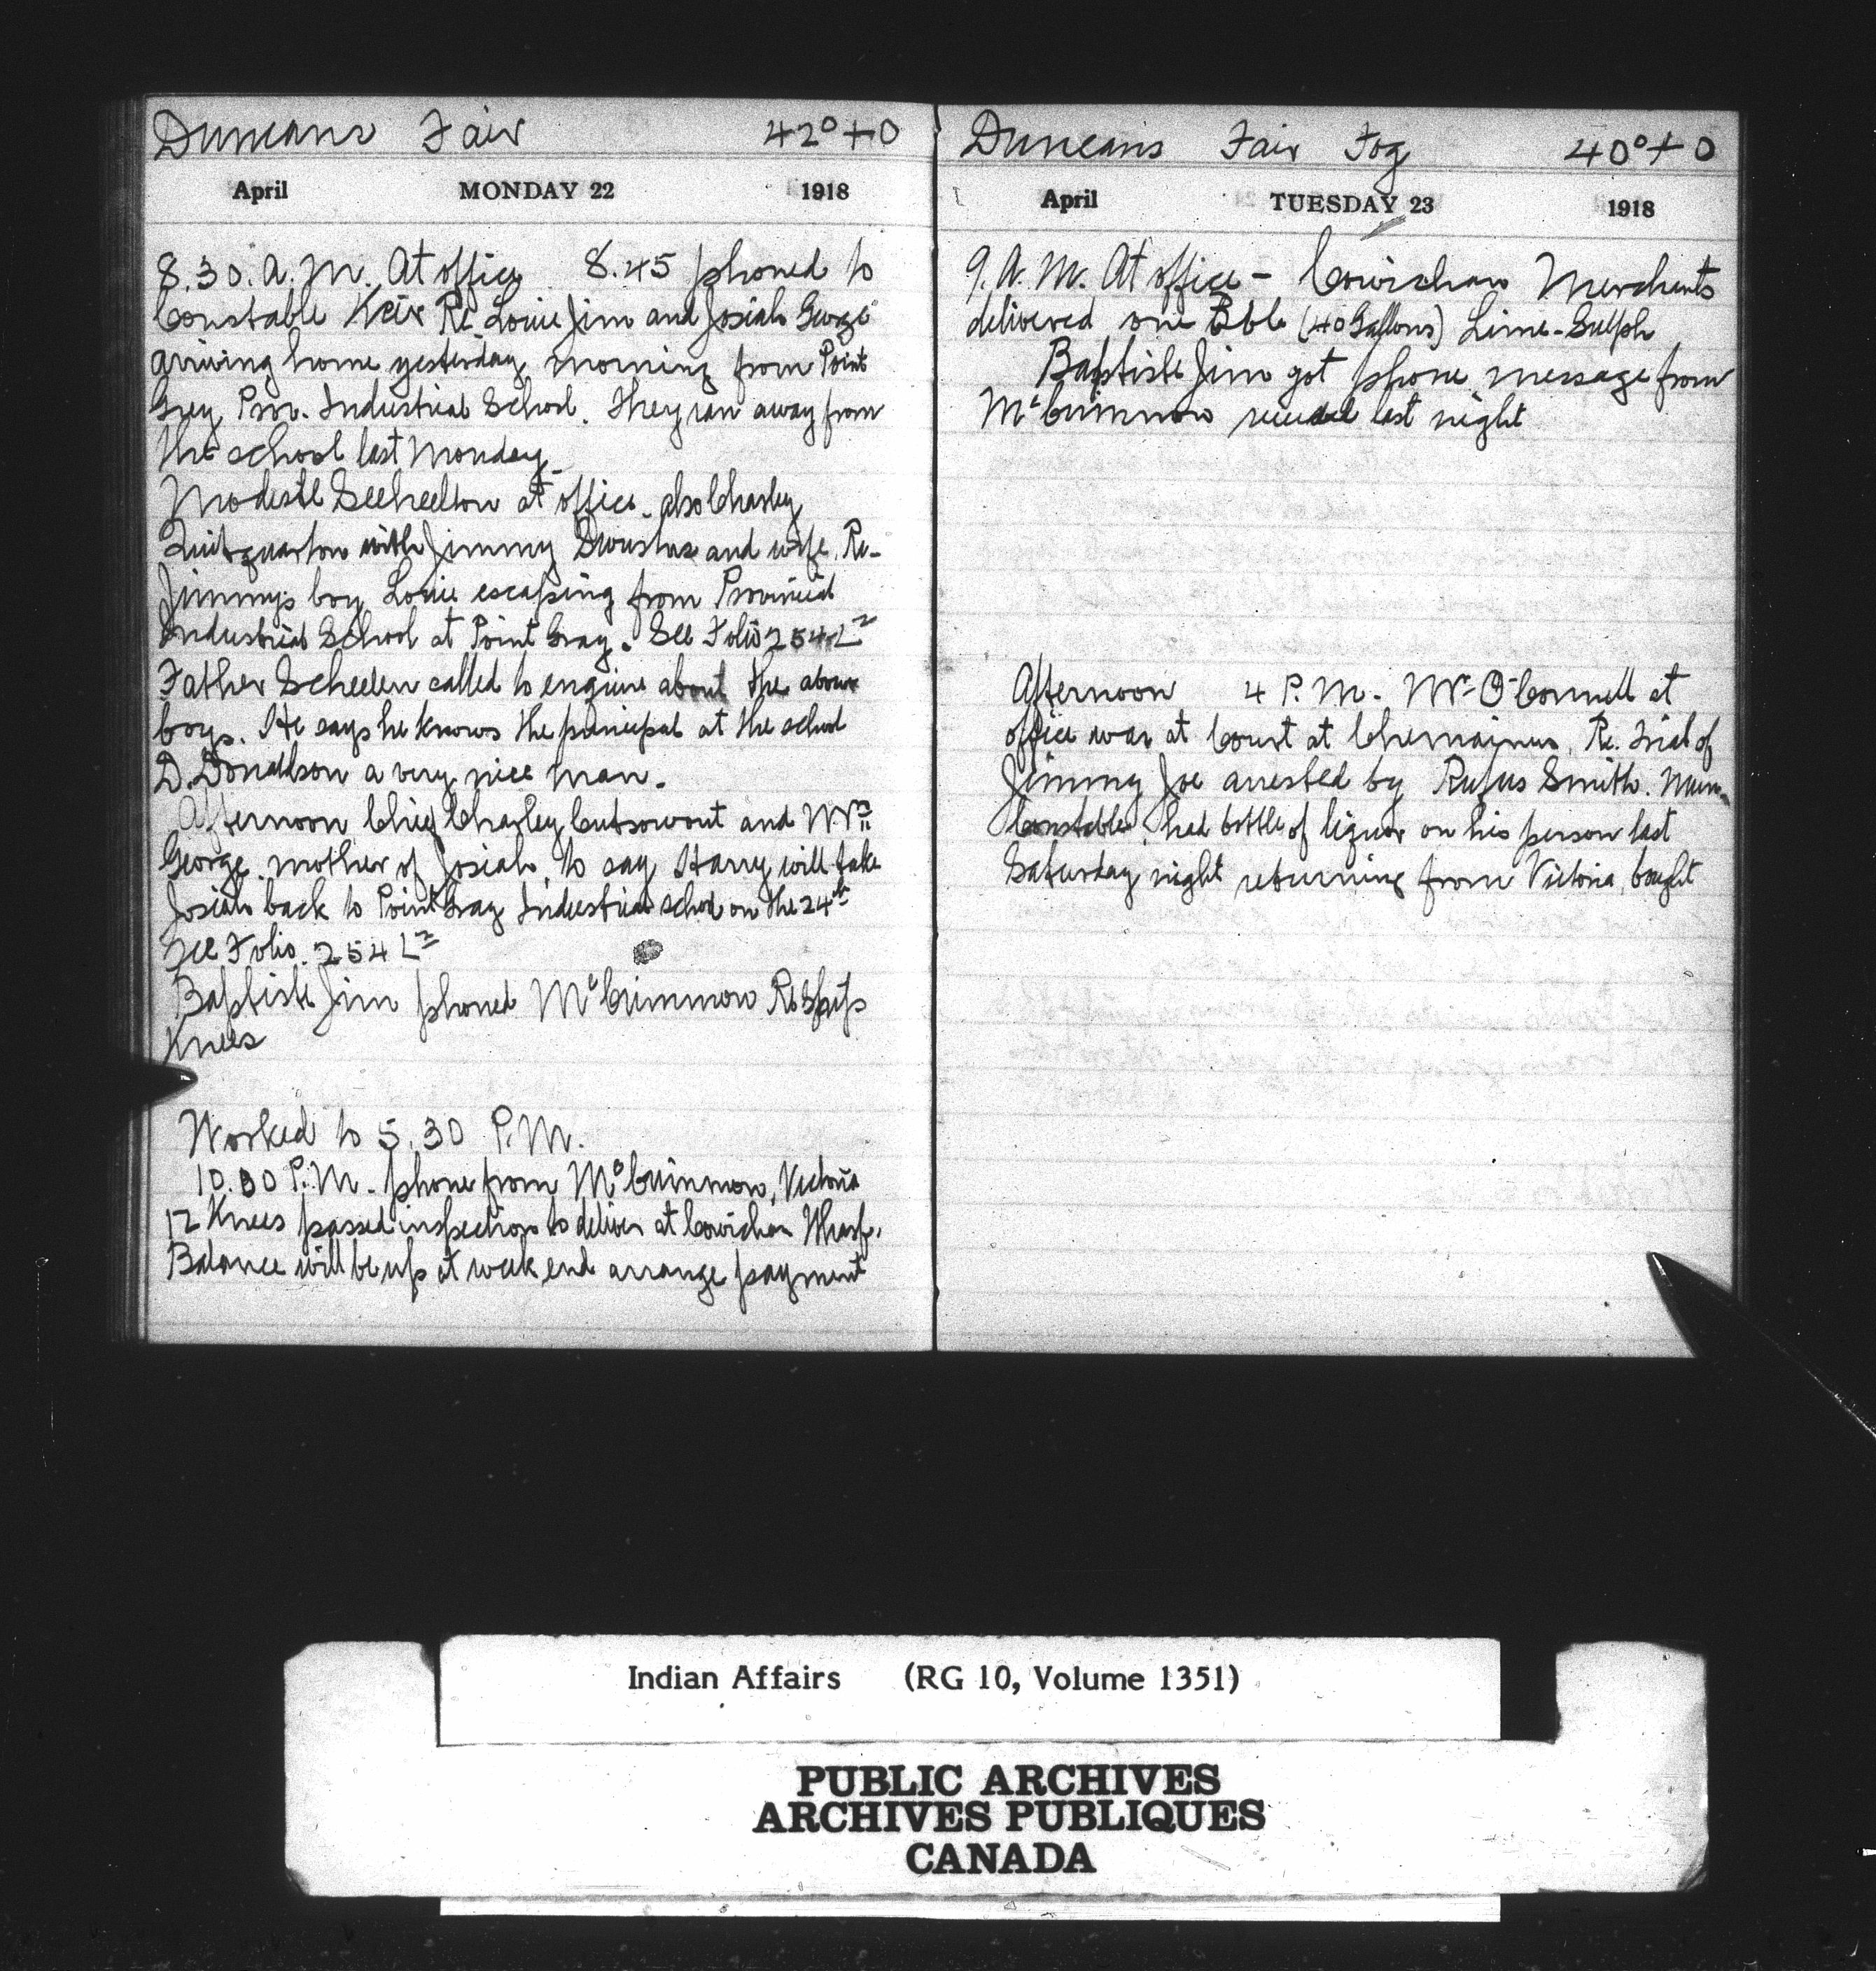 Duncans Fair 42°+0
April MONDAY 22 1918
8.30. A.M. At office 8.45 phoned to
Constable Keir Re Louie Jim and Josiah George
arriving home yesterday morning from Point
Grey Prov. Industrial School. They ran away from
the school last Monday
Modeste Seeheelton at office. also Charley
with Jimmy and wife. Re-
Jimmys boy Louie escaping from Provincial
Industrial School at Point Gray. See Folio 254 L
Father Scheelen called to enquire about the above
boys. He says he knows the principal at the school
D. Donaldson a very nice man.
Afternoon Chief Charley Cutsowout and Mrs
George. mother of Josiah, to say Harry will take
Josiah back to Point Gray Industrial school on the 24th
See Folio. 254 L
Baptiste Jim phoned McCrimmon Re Ships
Knees
Worked to 5.30 P.M.
10.30 P.M. phone from McCrimmon, Victoria
12 Knees passed inspection to deliver at Cowichan Wharf.
Balance will be up at week end arrange payment
Duncans Fair Fog 40°+0
April TUESDAY 23 1918
9. A. M. At office - Cowichan Merchants
delivered one Bbl (40 Gallons) Lime-Sulph
Baptiste Jim got phone message from
McCrimmon last night
Afternoon 4 P.M. Mr O'Connell at
office was at Court at Chemainus, Re. Trial of
Jimmy Joe arrested by Rufus Smith. Mun.
Constable, had bottle of liquor on his person last
Saturday night returning from Victoria, bought
Indian Affairs (RG 10, Volume 1351)
PUBLIC ARCHIVES
ARCHIVES PUBLIQUES
CANADA